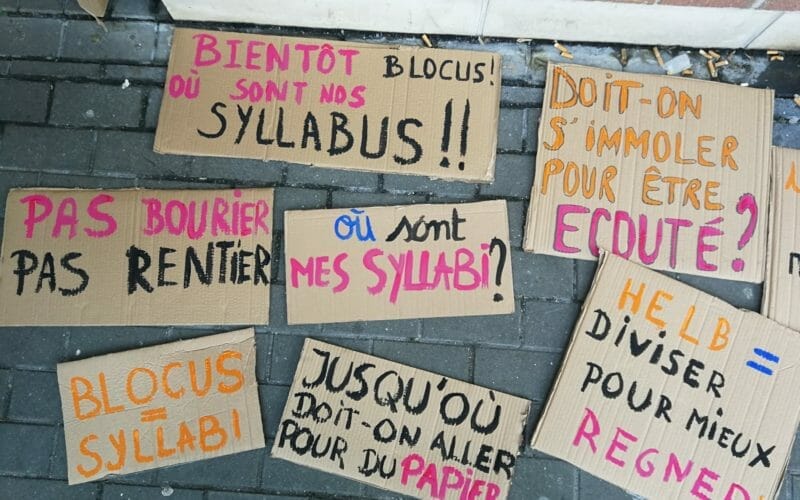 BIENTÔT BLOCUS!
OÙ SONT NOS
SYLLABUS!!
DOIT-ON
S'IMMOLER
POUR ÊTRE
ECOUTÉ?
PAS BOURIER
PAS RENTIER
OÙ sont
MES SYLLABI?
HELB =
DIVISER
POUR MIEUX
REGNER
BLOCUS
=
SYLLABI
JUSQU'OÙ
DOIT-ON ALLER
POUR DU PAPIER